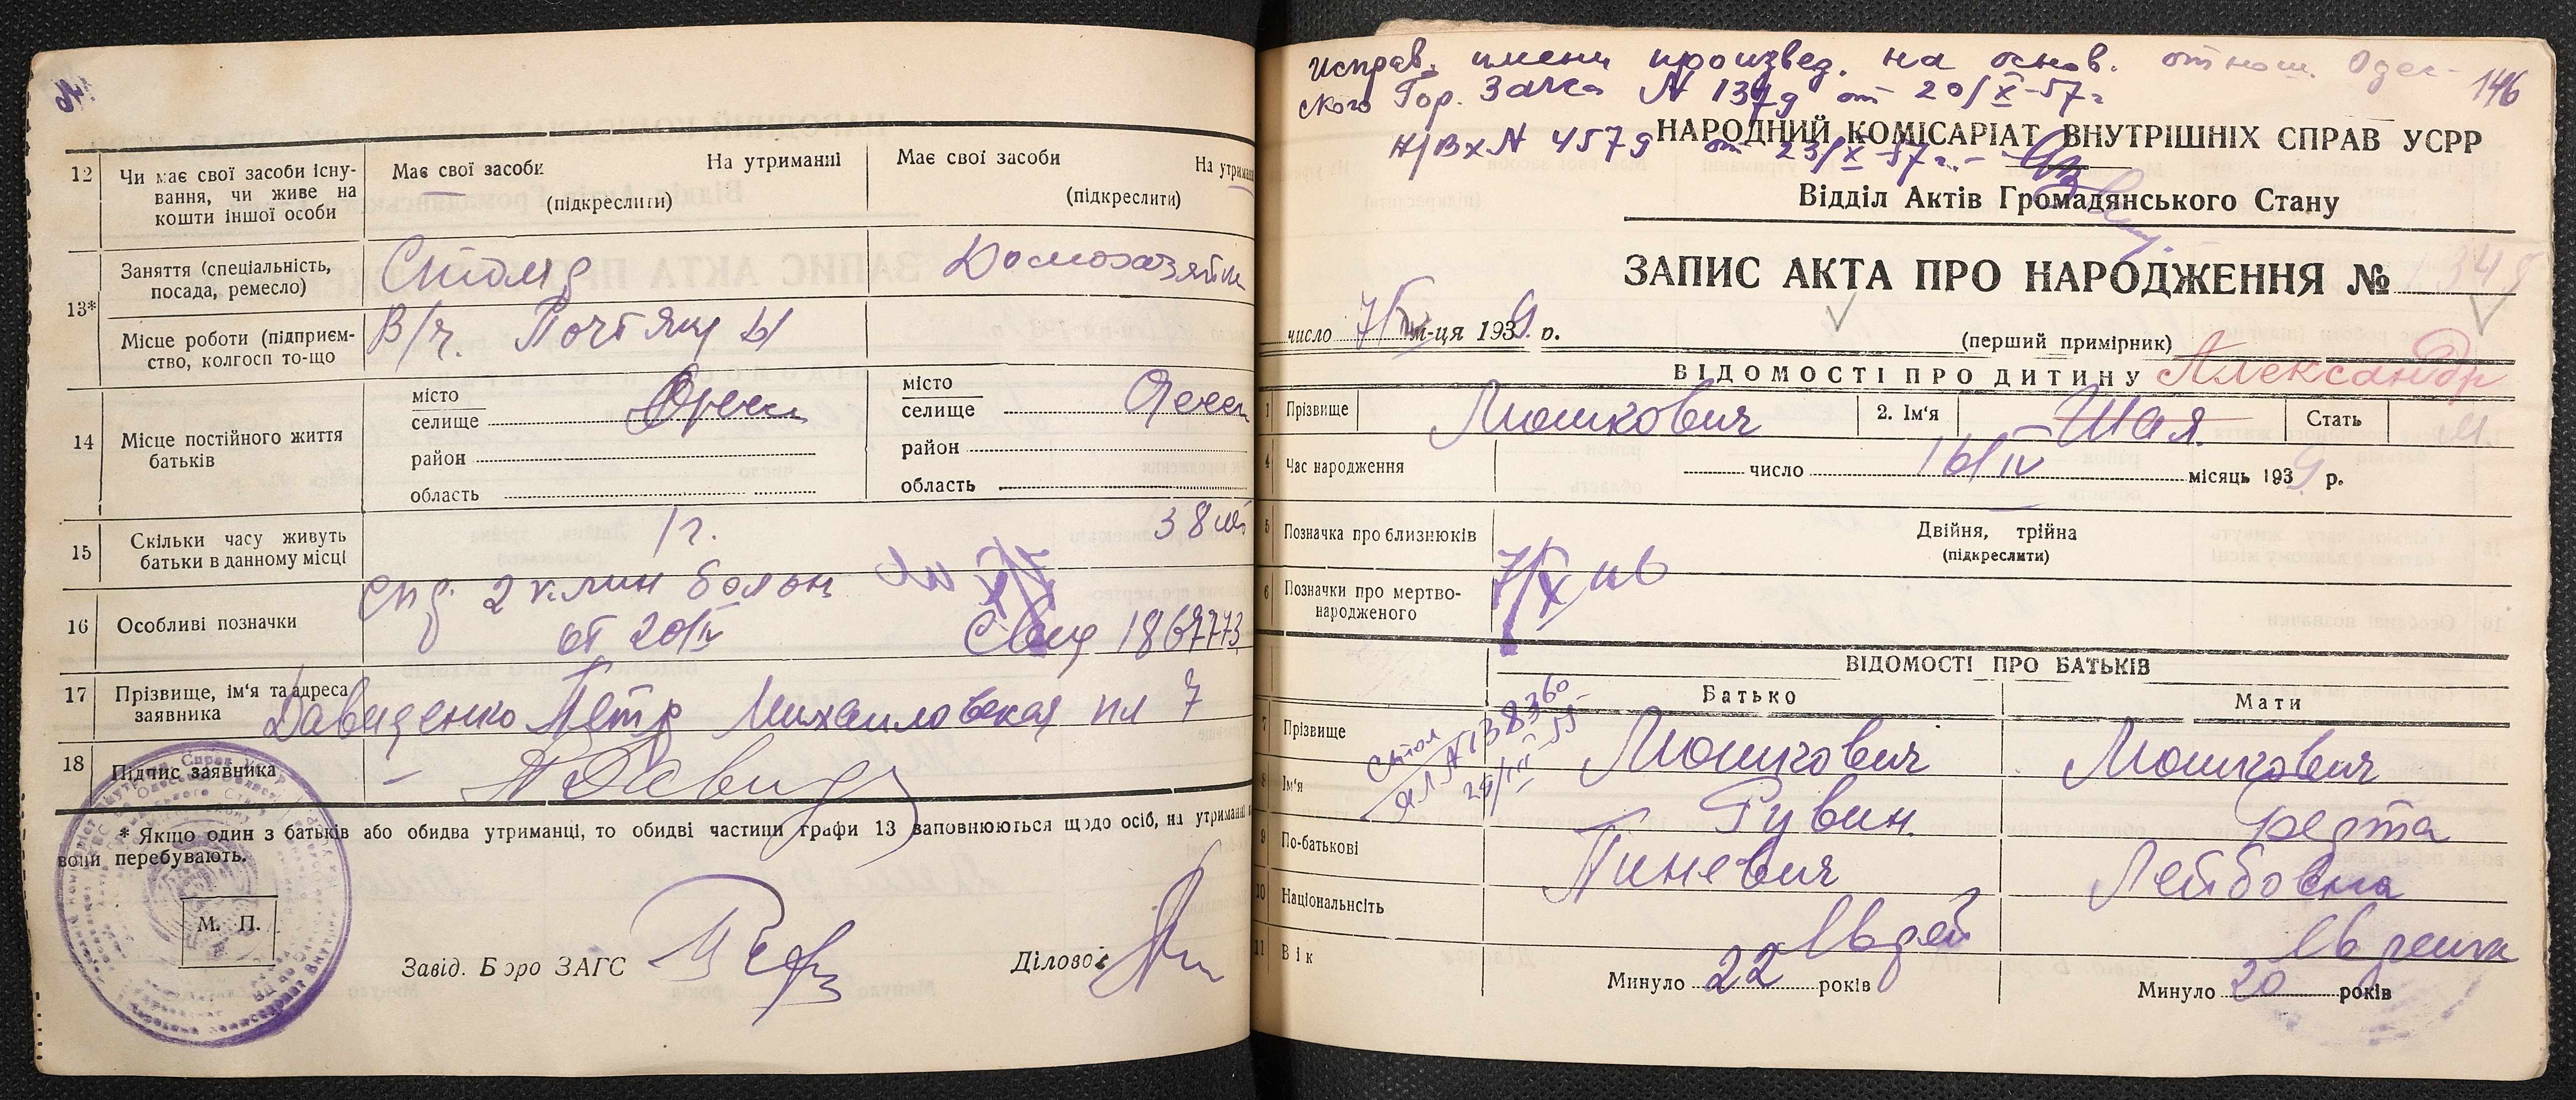 12 Чи має свої засоби існу-
вання, чи живе на
кошти іншої особи
Має свої засоби На утриманні
(підкреслити)
Має свої засоби На утриманні
(підкреслити)
13*
Заняття (спеціальність,
посада, ремесло)
Домохазяйка
Місце роботи (підприєм-
ство, колгосп то-що
В/ч.
14 Місце постійного життя
батьків
місто
селище Одесса
район
область
місто
селище Одесса
район
область
15 Скільки часу живуть
батьки в данному місці
1 г.
16 Особливі позначки
2 клин больн
от 20/IV
Свид 1867773
17 Прізвище, ім'я та адреса
заявника
Давиденко Петр Михаиловская пл 7
18 Підпис заявника
* Якщо один з батьків або обидва утриманці, то обидві частини графи 13 заповнюються щодо осіб, на утриманні
вони перебувають.
М. П.
Завід. Бюро ЗАГС
Діловод
Исправ. имени произвед. на основ. отнош. Одес-
ского Гор. Загса N от 20/X-57г
Н/Вх N 457 от 23/X-57г.
146
НАРОДНИЙ КОМІСАРІАТ ВНУТРІШНІХ СПРАВ УСРР
Відділ Актів Громадянського Стану
ЗАПИС АКТА ПРО НАРОДЖЕННЯ №
число м-ця 1939 р.
(перший примірник)
ВІДОМОСТІ ПРО ДИТИНУ
Александр
1 Прізвище Мошкович 2. Ім'я Шая Стать
4 Час народження число 16/IV місяць 1939 р.
5 Позначка про близнюків
Двійня, трійна
(підкреслити)
6 Позначки про мертво-
народженого
ВІДОМОСТІ ПРО БАТЬКІВ
Батько Мати
7 Прізвище Мошкович Мошкович
8 Ім'я Рувин
9 По-батькові Пиневич Лейбовна
10 Національнсіть Еврей Еврейка
11 Вік Минуло 22 років Минуло 20 років